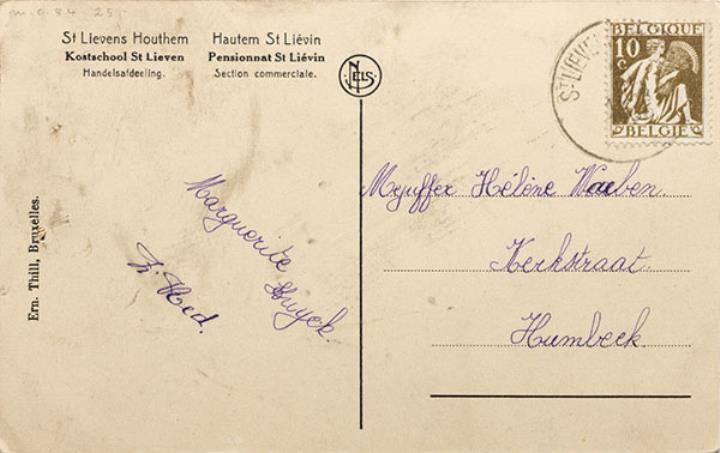 m.c.84 25
St Lievens Houthem
Kostschool St Lieven
Handelsafdeeling.
Hautem St Liévin
Pensionnat St Liévin
Section commerciale.
NELS
ST LIEVE
BELGIQUE
10
c
BELGIE
Mejuffer Hélène Wauben.
Kerkstraat.
Humbeek.
Marguerite
Huyck.
Z. Ked.
Ern. Thill, Bruxelles.